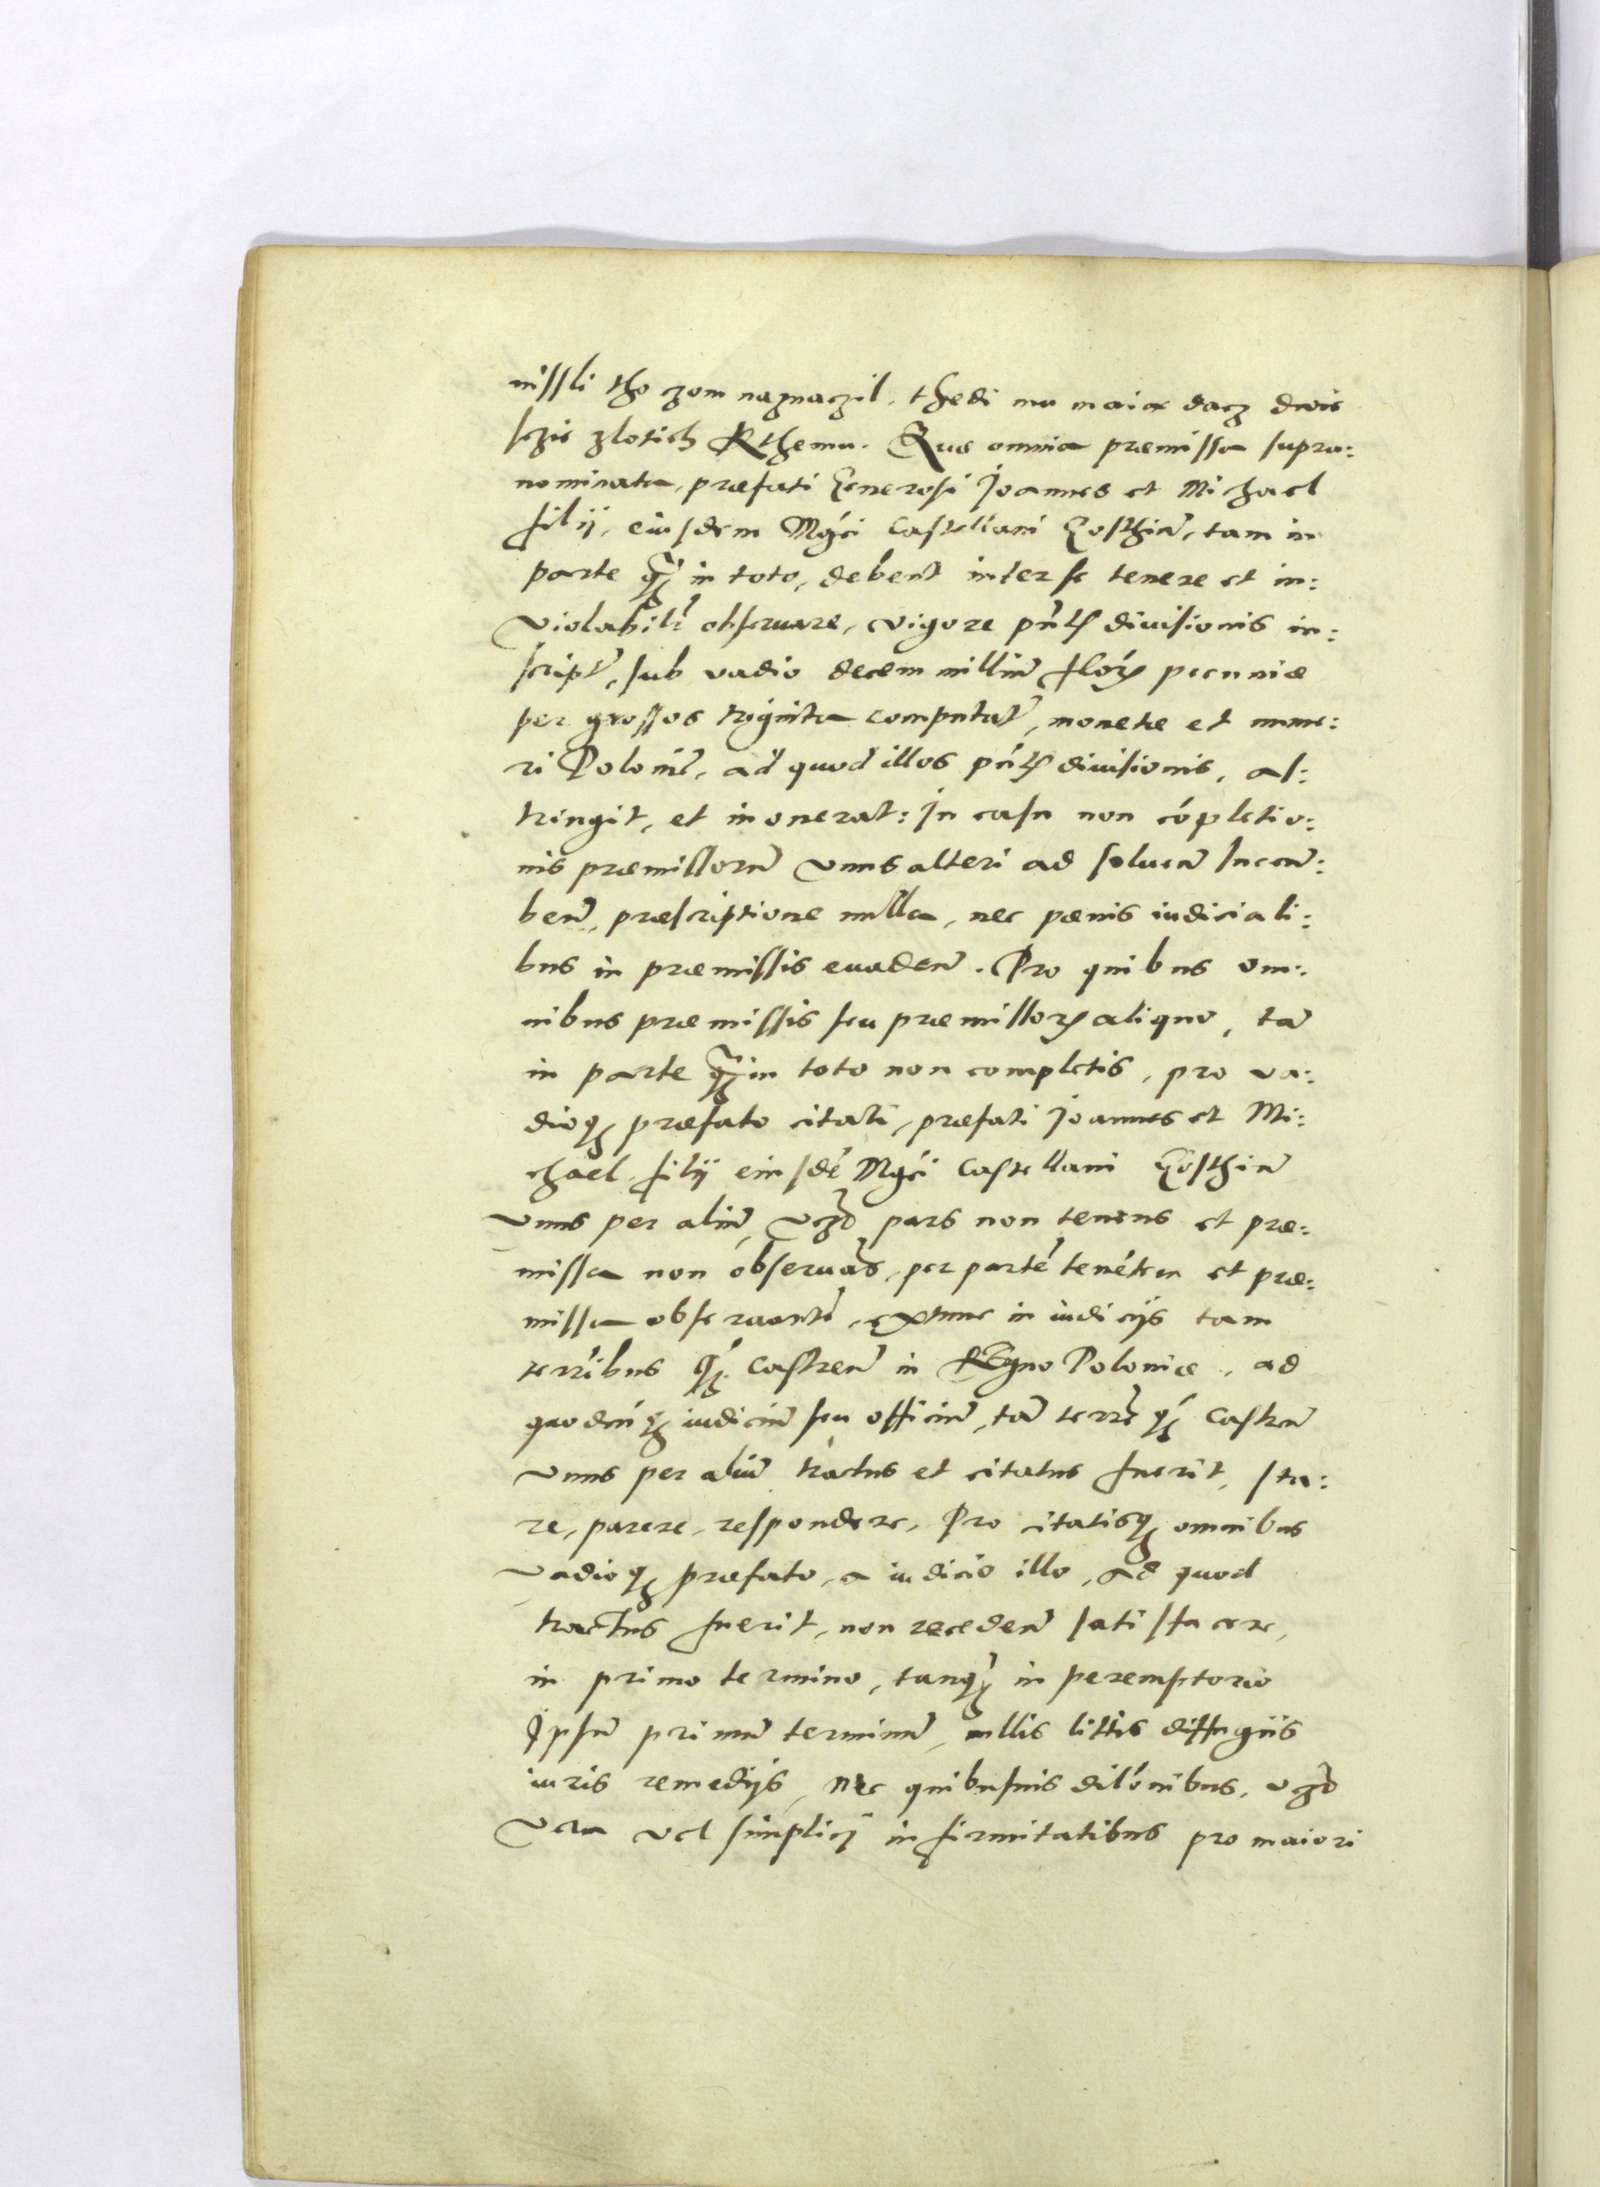 nissli tho gom naznaczil, thedi mu maia dacz dwie
sczie zlotich kthemu. Quæ omnia præmissa supra:
nominata, præfati Generosi Joannes et Michael
filij, eiusdem Mgci Castellani Gosthin̄, tam in
parte q̃ in toto, debent inter se tenere et in:
violabilr̄ obseruare, vigore pn̄tis diuisionis in:
script̄, sub vadio decem milliū flor̄ pecuniæ
per grossos triginta computat̄, monetæ et nume:
ri Poloniē, ad quod illos pn̄tis diuisionis, as:
tringit, et inonerat: In casu non cōpletio:
nis præmissorū vnus alteri ad soluen̄ Incum̄:
ben̄, præscriptione nulla, nec pœnis iudiciali:
bus in præmissis euaden̄. Pro quibus om:
nibus præmissis seu præmissor̄ aliquo, tā
in parte q̃ in toto non completis, pro va:
dioq̃ præfato citati, præfati Joannes et Mi:
chael filij eiusdē Mgci Castellani Gosthin̄
vnus per aliū, vz̄ pars non tenens et præ:
missa non obseruās, per partē tenētem et præ:
missa obseruantē, extunc in iudicijs tam
terr̄ibus q̃ Castren̄ in Regno Poloniæ, ad
quodcūq̃ iudiciū seu officiū, tā terrē q̃ Castren̄
vnus per aliū tractus et citatus fuerit, sta:
re, parere, respondere, Pro citatisq̃ omnibus
vadioq̃ præfato, a iudicio illo, ad quod
tractus fuerit, non receden̄ satisfacere,
in primo termino, tanq̃ in peremptorio
Ipsum primū terminū, nullis littis diffugiis
iuris remedijs, nec quibusuis dilōnibus, vz̄
vera vel simplici infirmitatibus pro maiori